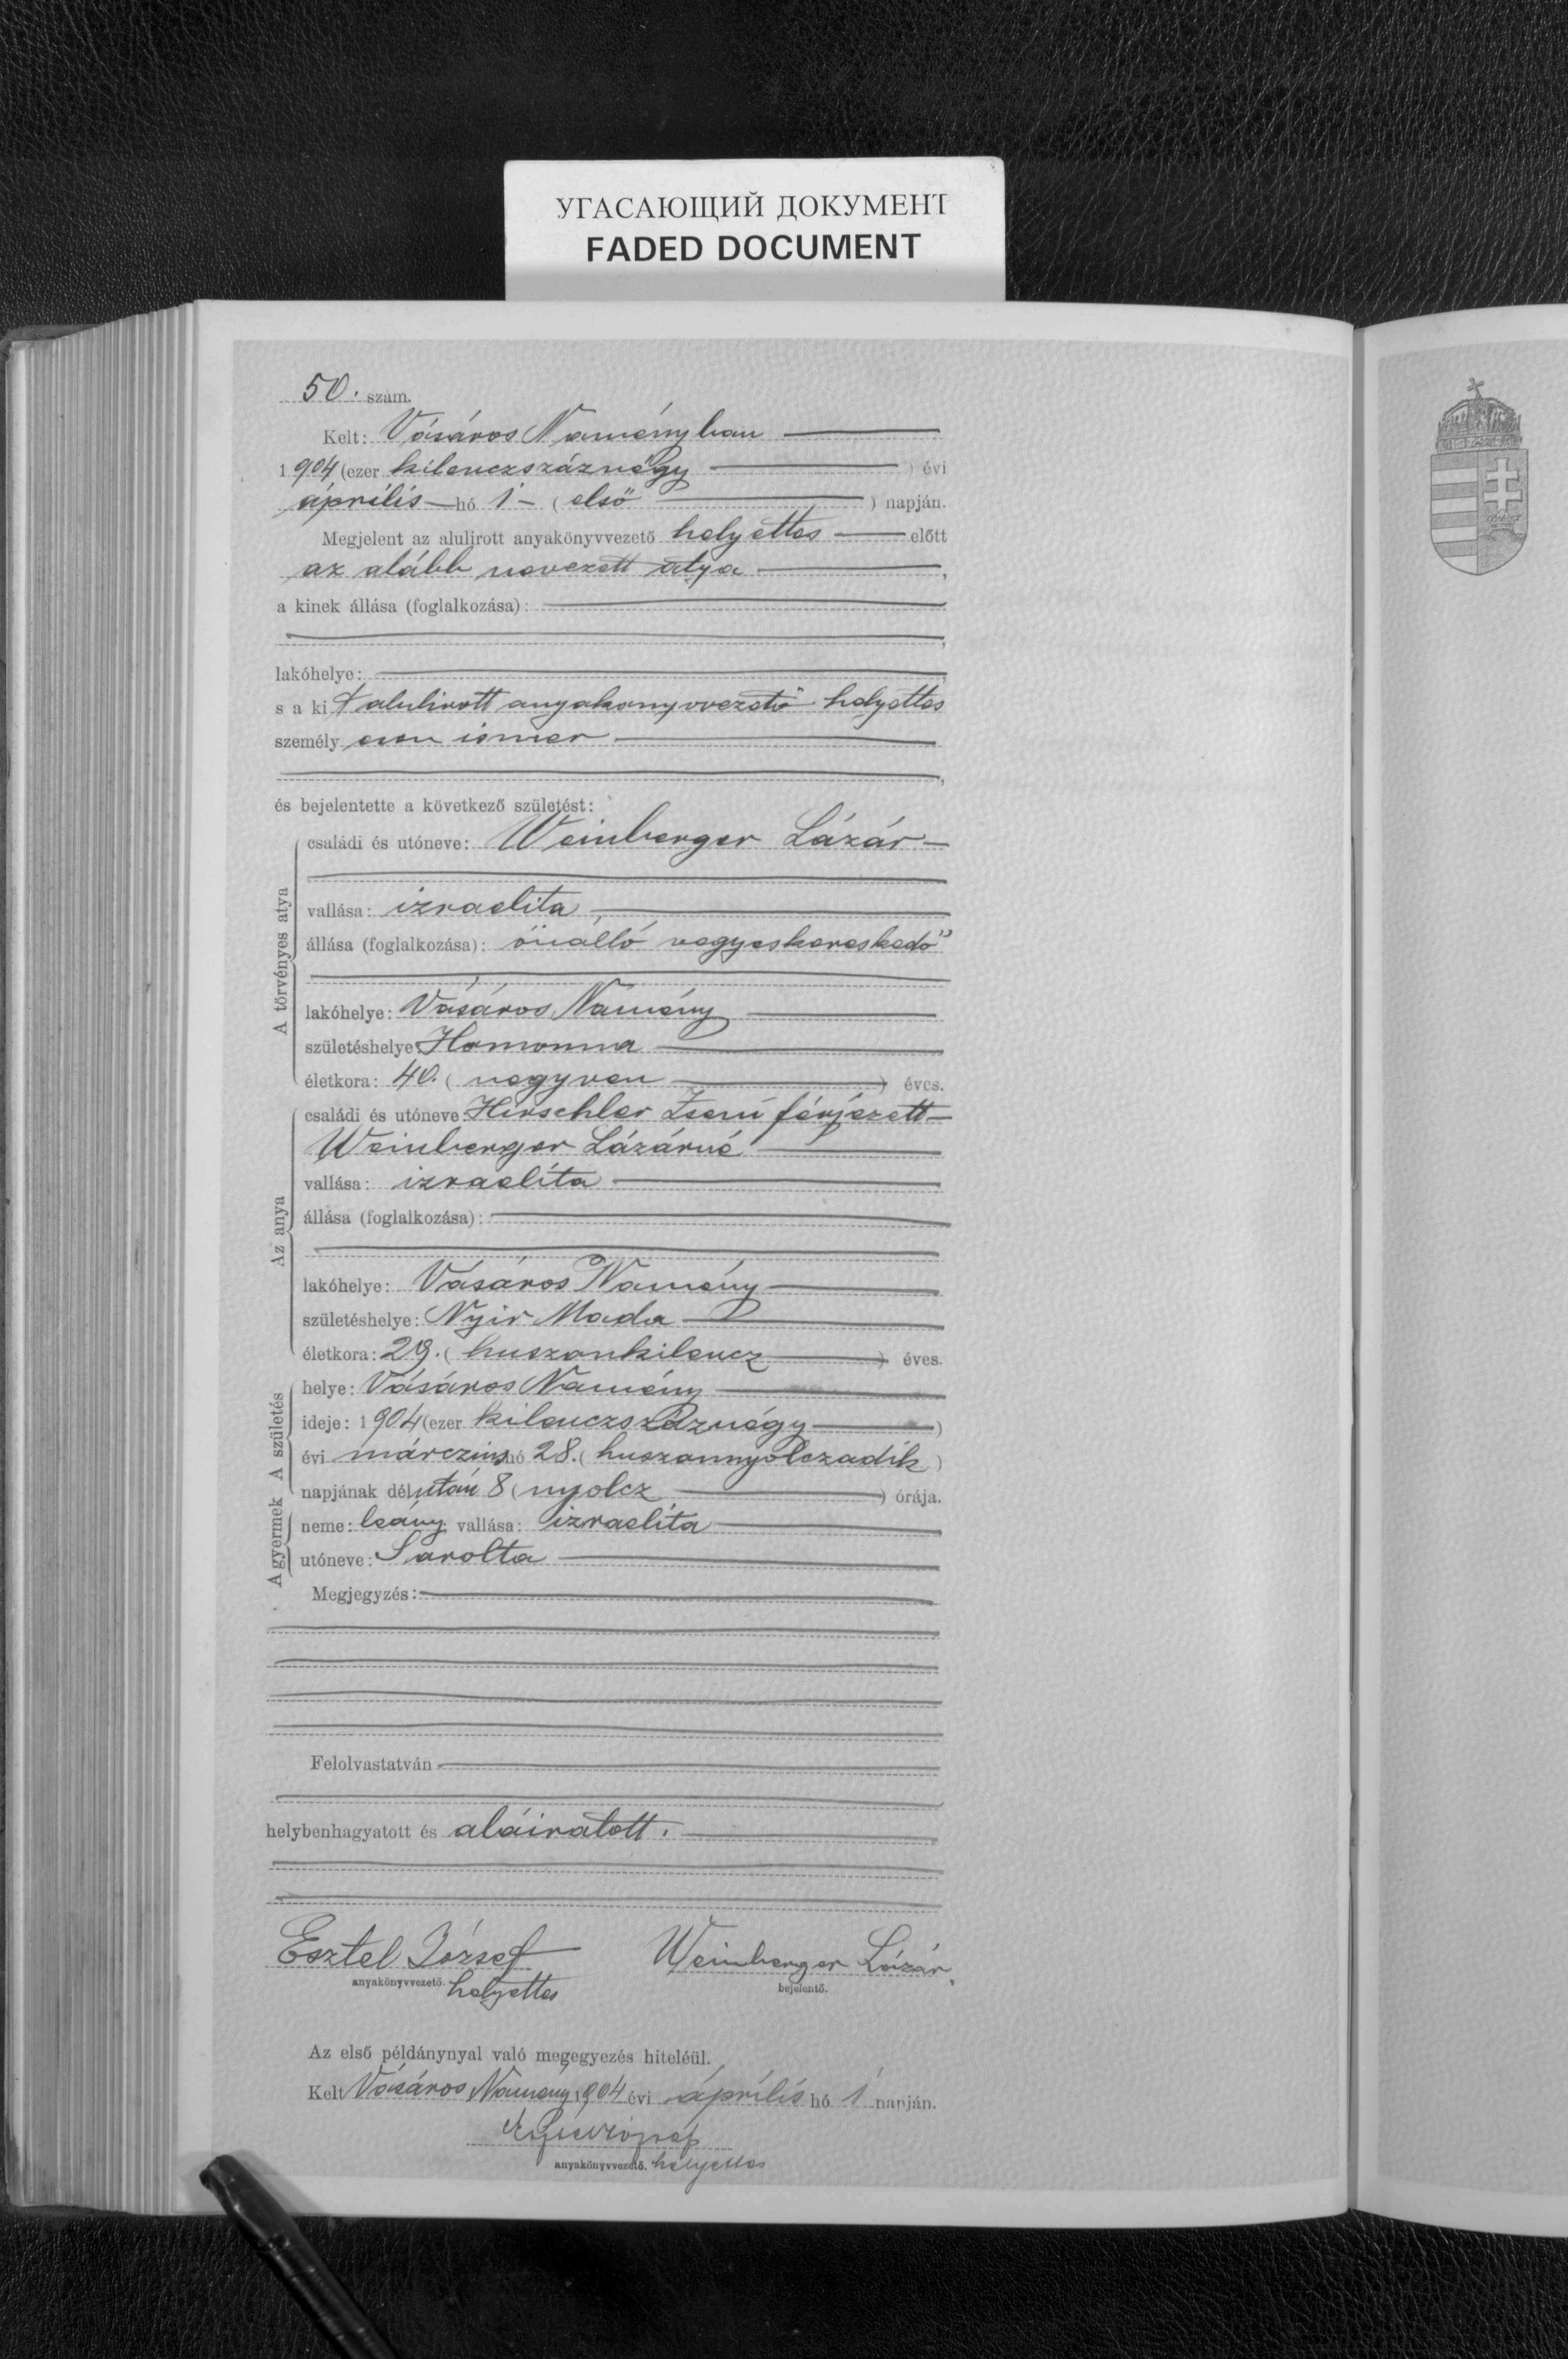 УГАСАЮЩИЙ ДОКУМЕНТ
FADED DOCUMENT
50. szám.
Kelt: Vásáros Naményban
1904 (ezer kilenczszáznégy ) évi
április hó 1 (első ) napján.
Megjelent az alulirott anyakönyvvezető helyettes előtt
az alább nevezett atya,
a kinek állása (foglalkozása):
lakóhelye:
s a ki alulirott anyakonyvvezető helyettes
személy esen ismer
és bejelentette a következő születést:
A törvényes atya
családi és utóneve: Weinberger Lázár
vallása: izraelita
állása (foglalkozása): önálló vegyeskereskedő
lakóhelye: Vásáros Namény
születéshelye: Homonna
életkora: 40. (negyven ) éves.
Az anya
családi és utóneve: Hirschler Zseni férjezett
Weinberger Lázárné
vallása: izraelita
állása (foglalkozása):
lakóhelye: Vásáros Namény
születéshelye: Nyir Mada
életkora: 29. (huszonkilencz ) éves.
A születés
helye: Vásáros Namény
ideje: 1904 (ezer kilenczszáznégy )
évi márczius hó 28. (huszonnyolczadik)
napjának délután 8 (nyolcz ) órája.
A gyermek
neme: leány vallása: izraelita
utóneve: Sarolta
Megjegyzés:
Felolvastatván
helybenhagyatott és aláiratott.
Esztel József Weinberger Lázár
anyakönyvvezető. helyettes bejelentő.
Az első példánynyal való megegyezés hiteléül.
Kelt Vásáros Namény 1904 évi április hó 1 napján.
anyakönyvvezető. helyettes